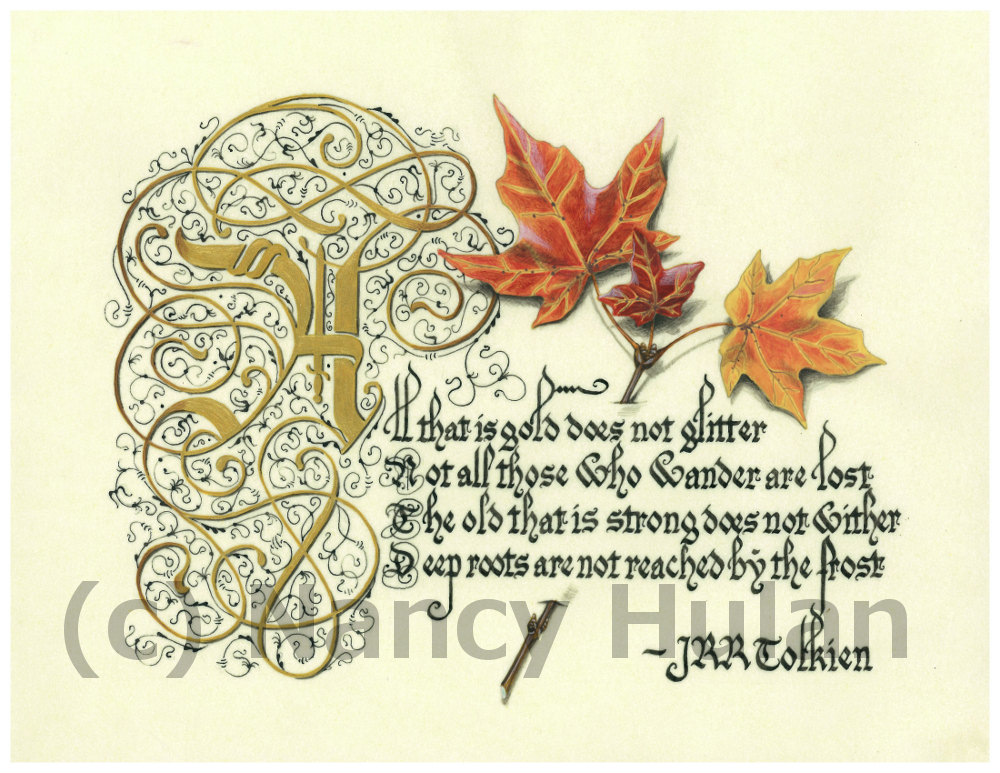 All that is gold does not glitter
Not all those who wander are lost
The old that is strong does not wither
Deep roots are not reached by the frost
~JRR Tolkien
(c) Nancy Hulan